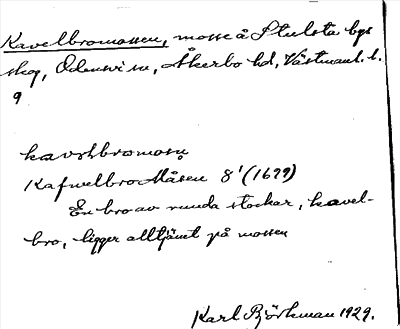 Kavelbromossen, mosse å Stulsta bys
skog, Odensvi sn, Åkerbo hd, Västmanl. l.
9
kavəlbromosņ
Kafwelbro Måsen 8' (1699)
En bro av runda stockar, kavel-
bro, ligger alltjämt på mossen
Karl Björkman 1929.